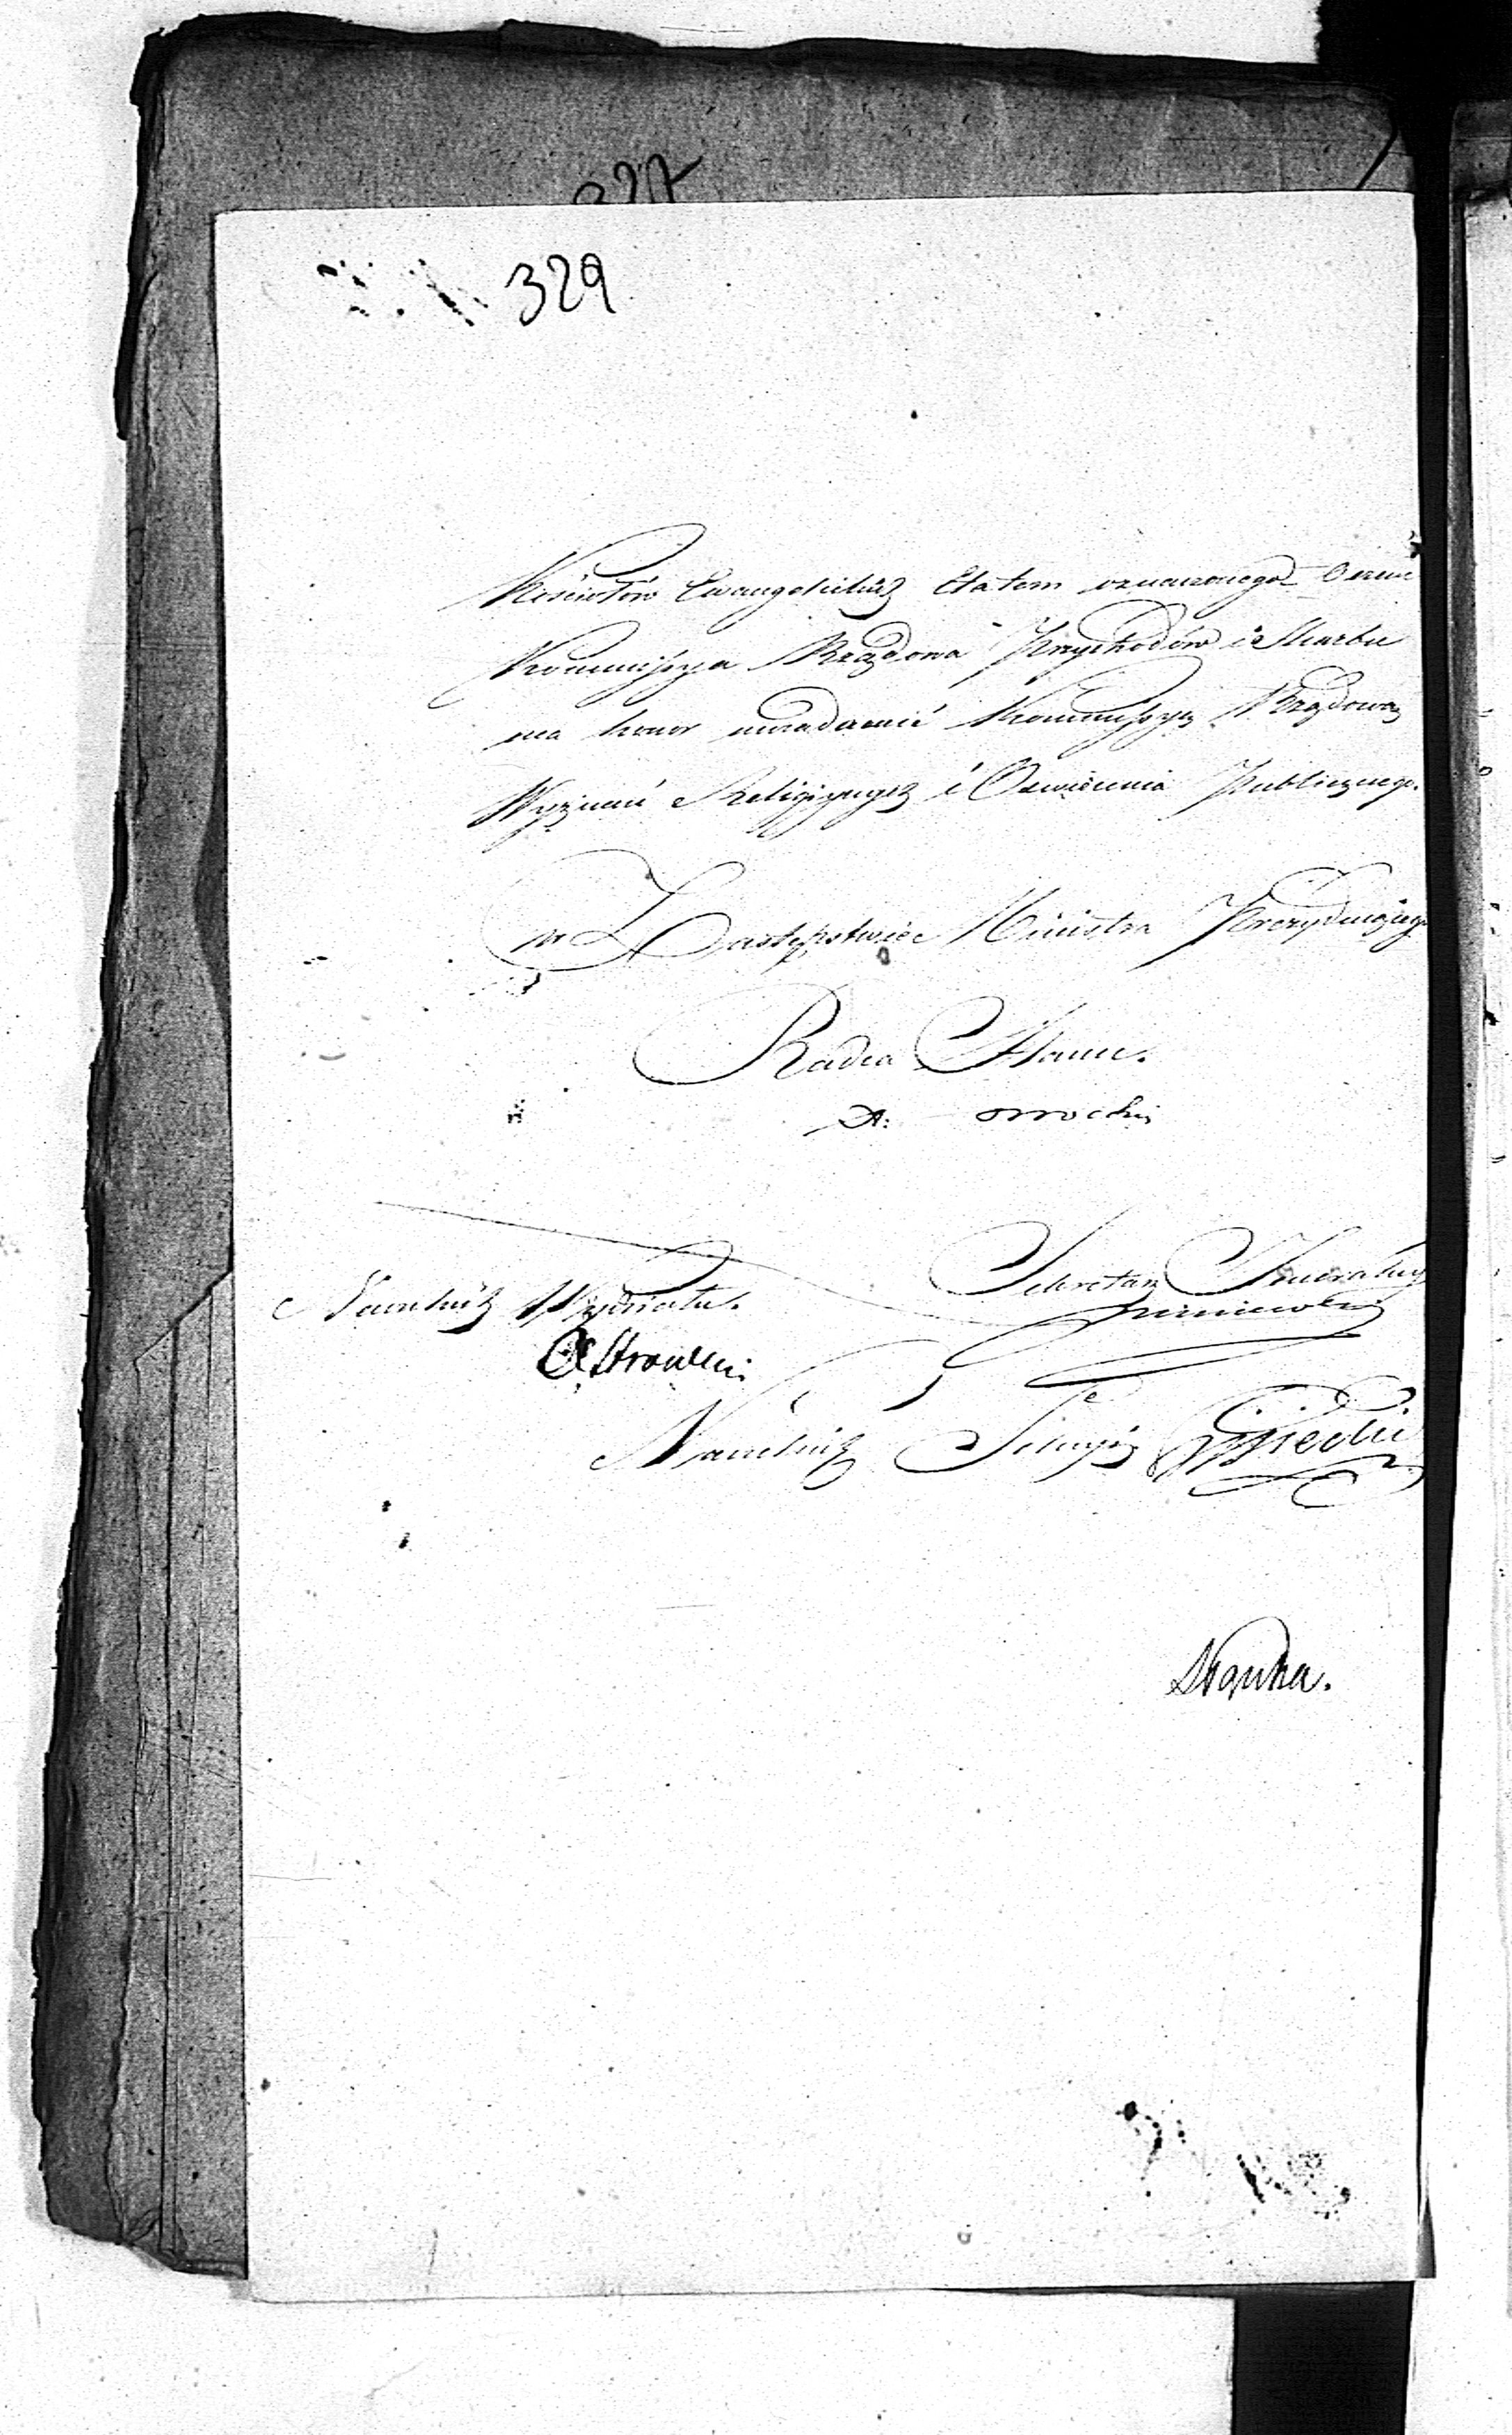 327
329
Kościołów Ewangelickich Etatem oznaczonego. O czem
Kommissya Rządowa Przychodów i Skarbu
ma honor uwiadomić Kommissyą Rządową
Wyznań Religijnych i Oświecenia Publicznego.
w Zastępstwie Ministra Prezydującego
Radca Stanu.
Sekretarz Generalny
Naczelnik Wydziału.
Naczelnik Sekcyi